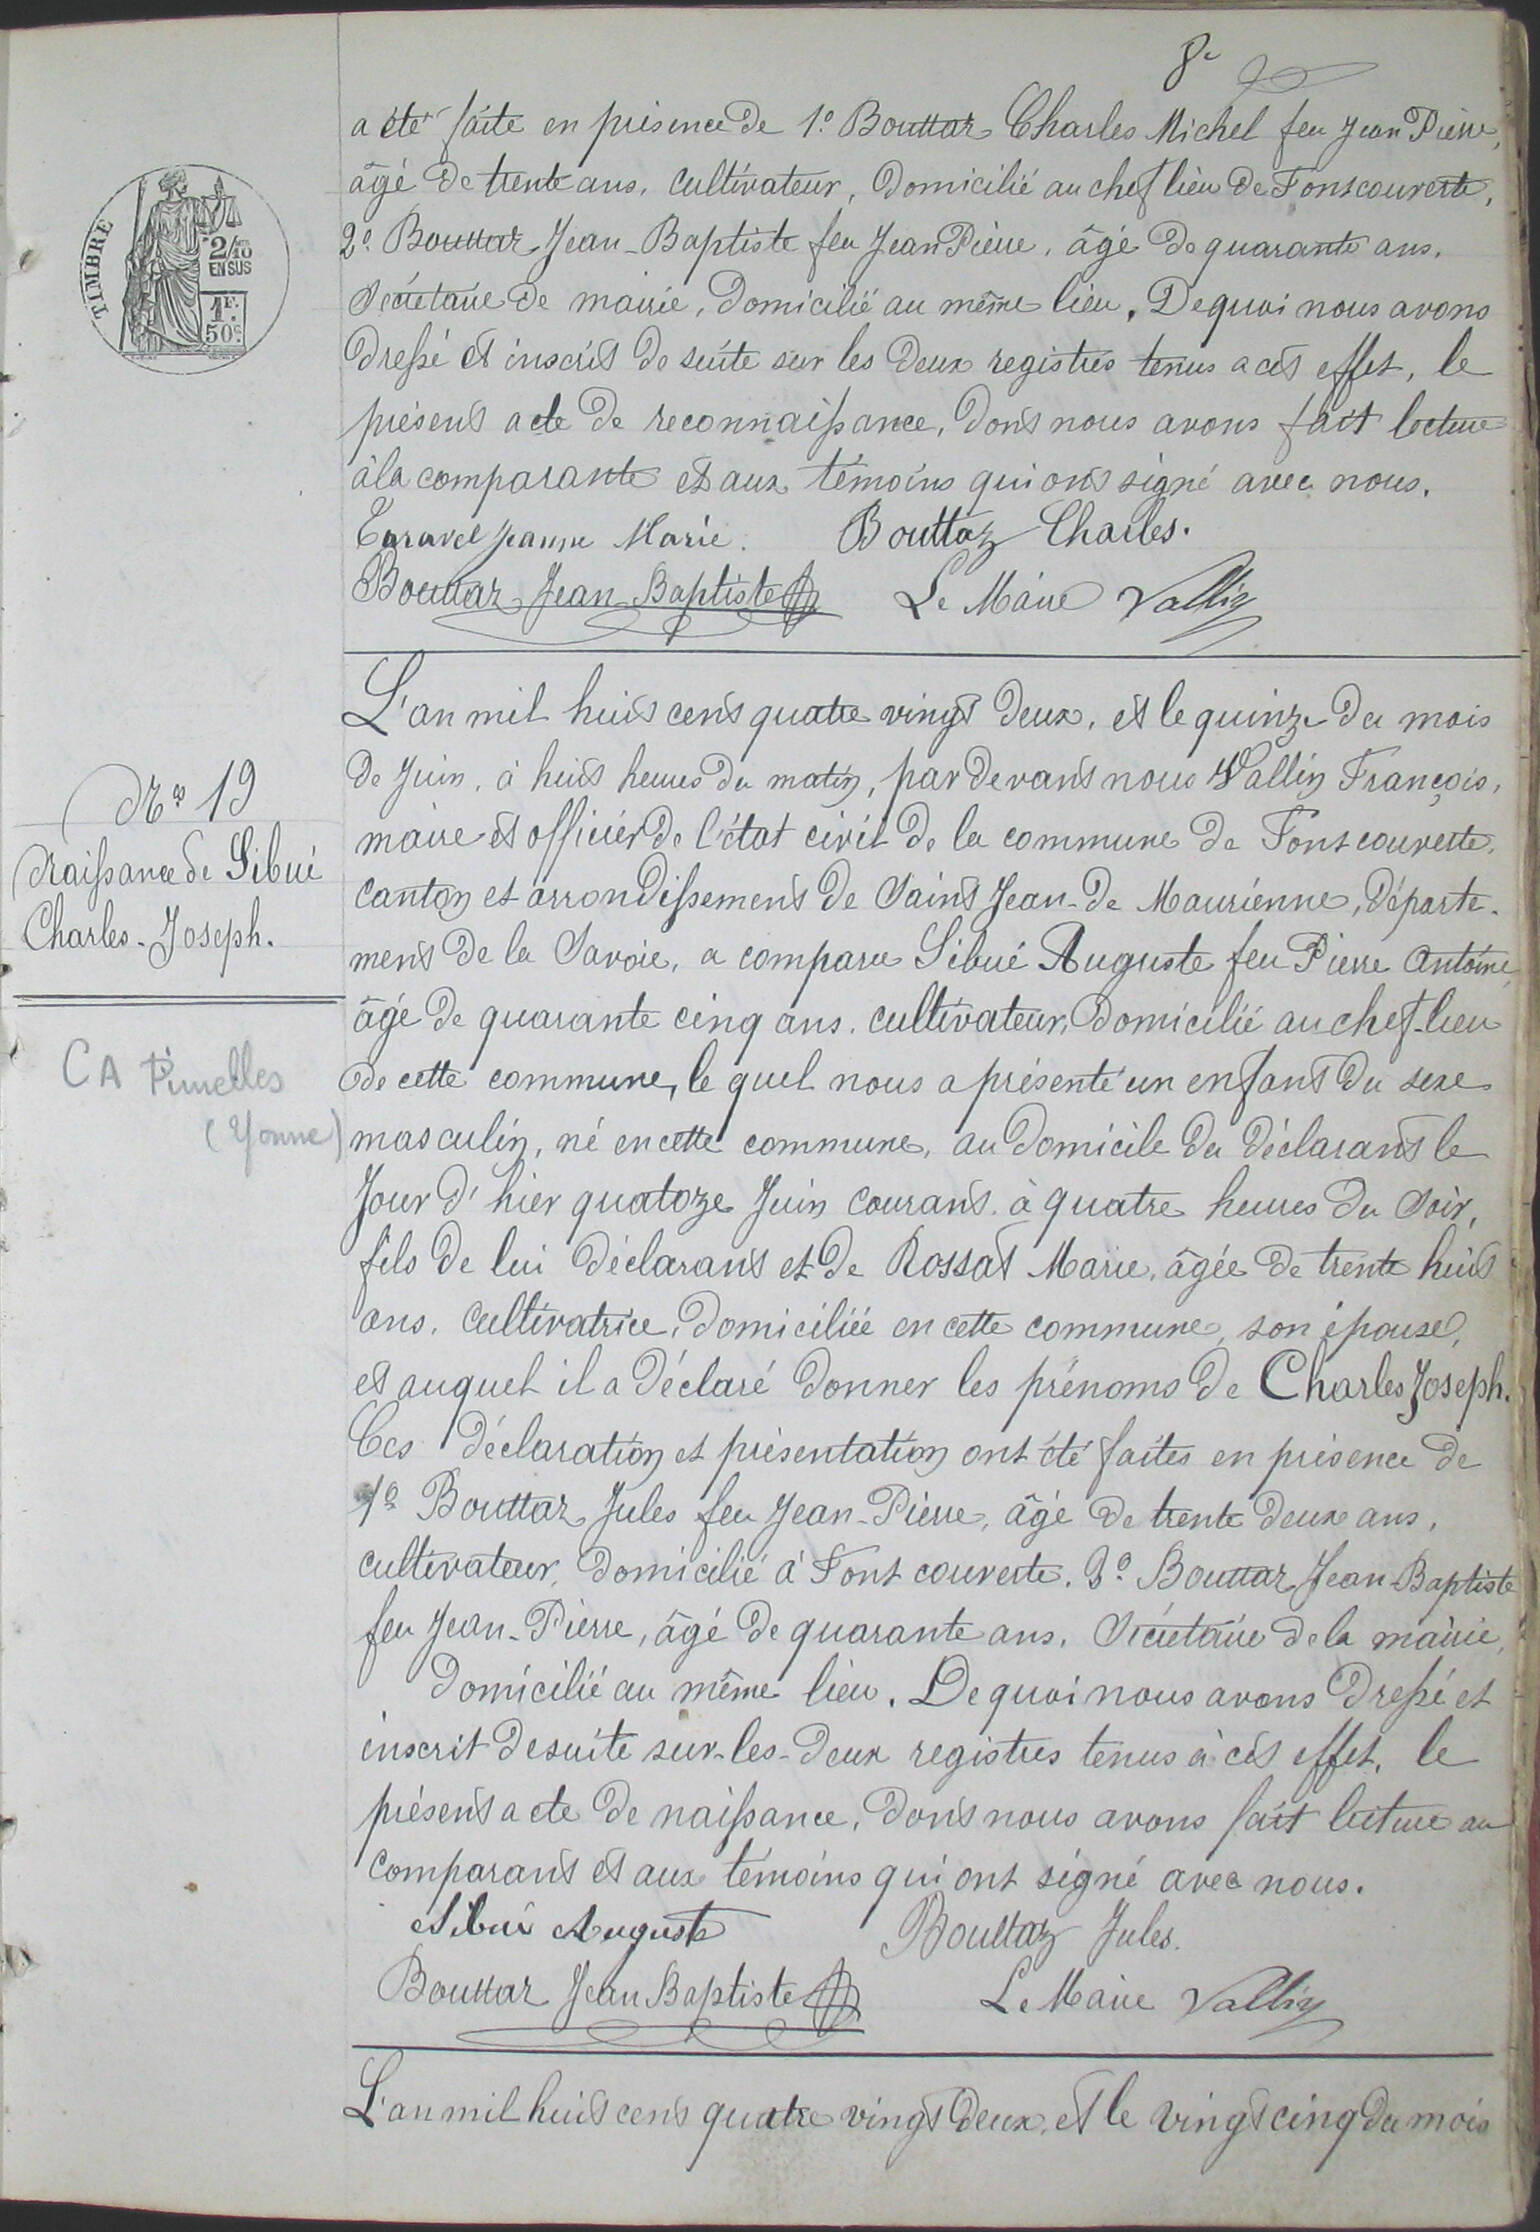 8e
a été faite en présence de 1.o Bouttaz Charles Michel feu Jean Pierre,
âgé de trente ans, cultivateur, domicilié au chef lieu de Fontcouverte,
2.o Bouttaz Jean-Baptiste feu Jean Pierre, âgé de quarante ans,
Secrétaire de mairie, domicilié au même lieu. De quoi nous avons
dressé et inscrit de suite sur les deux registres tenus a cet effet, le
présent acte de reconnaissance, dont nous avons fait lecture
à la comparante et aux témoins qui ont signé avec nous.
Taravel Jeanne Marie. Bouttaz Charles.
Bouttaz Jean-Baptiste Le Maire Vallin
TIMBRE
2/10
EN SUS
1F.
50c.
No 19
Naissance de Sibué
Charles-Joseph.
CA Pimelles
(Yonne)
L'an mil huit cent quatre vingt deux, et le quinze du mois
de Juin, à huit heures du matin, par devant nous Vallin François,
maire et officier de l'état civil de la commune de Fontcouverte,
canton et arrondissement de Saint Jean-de Maurienne, départe-
ment de la Savoie, a comparu Sibué Auguste feu Pierre Antoine,
âgé de quarante cinq ans, cultivateur, domicilié au chef-lieu
de cette commune, le quel nous a présenté un enfant du sexe
masculin, né en cette commune, au domicile du déclarant le
Jour d'hier quatoze Juin courant à quatre heures du Soir,
fils de lui déclarant et de Rossat Marie, âgée de trente huit
ans, cultivatrice, domiciliée en cette commune, son épouse,
et auquel il a déclaré donner les prénoms de Charles Joseph.
Ces déclaration et présentation ont été faites en présence de
1o Bouttaz Jules feu Jean-Pierre, âgé de trente deux ans,
cultivateur, domicilié à Font couverte. 2o Bouttaz Jean-Baptiste
feu Jean-Pierre, âgé de quarante ans, Secrétaire de la mairie,
domicilié au même lieu. De quoi nous avons dressé et
inscrit de suite sur-les-deux registres tenus à cet effet, le
présent acte de naissance, dont nous avons fait lecture au
comparant et aux témoins qui ont signé avec nous.
Sibué Auguste Bouttaz Jules.
Bouttaz Jean Baptiste Le Maire Vallin
L'an mil huit cent quatre vingt deux, et le vingt cinq du mois